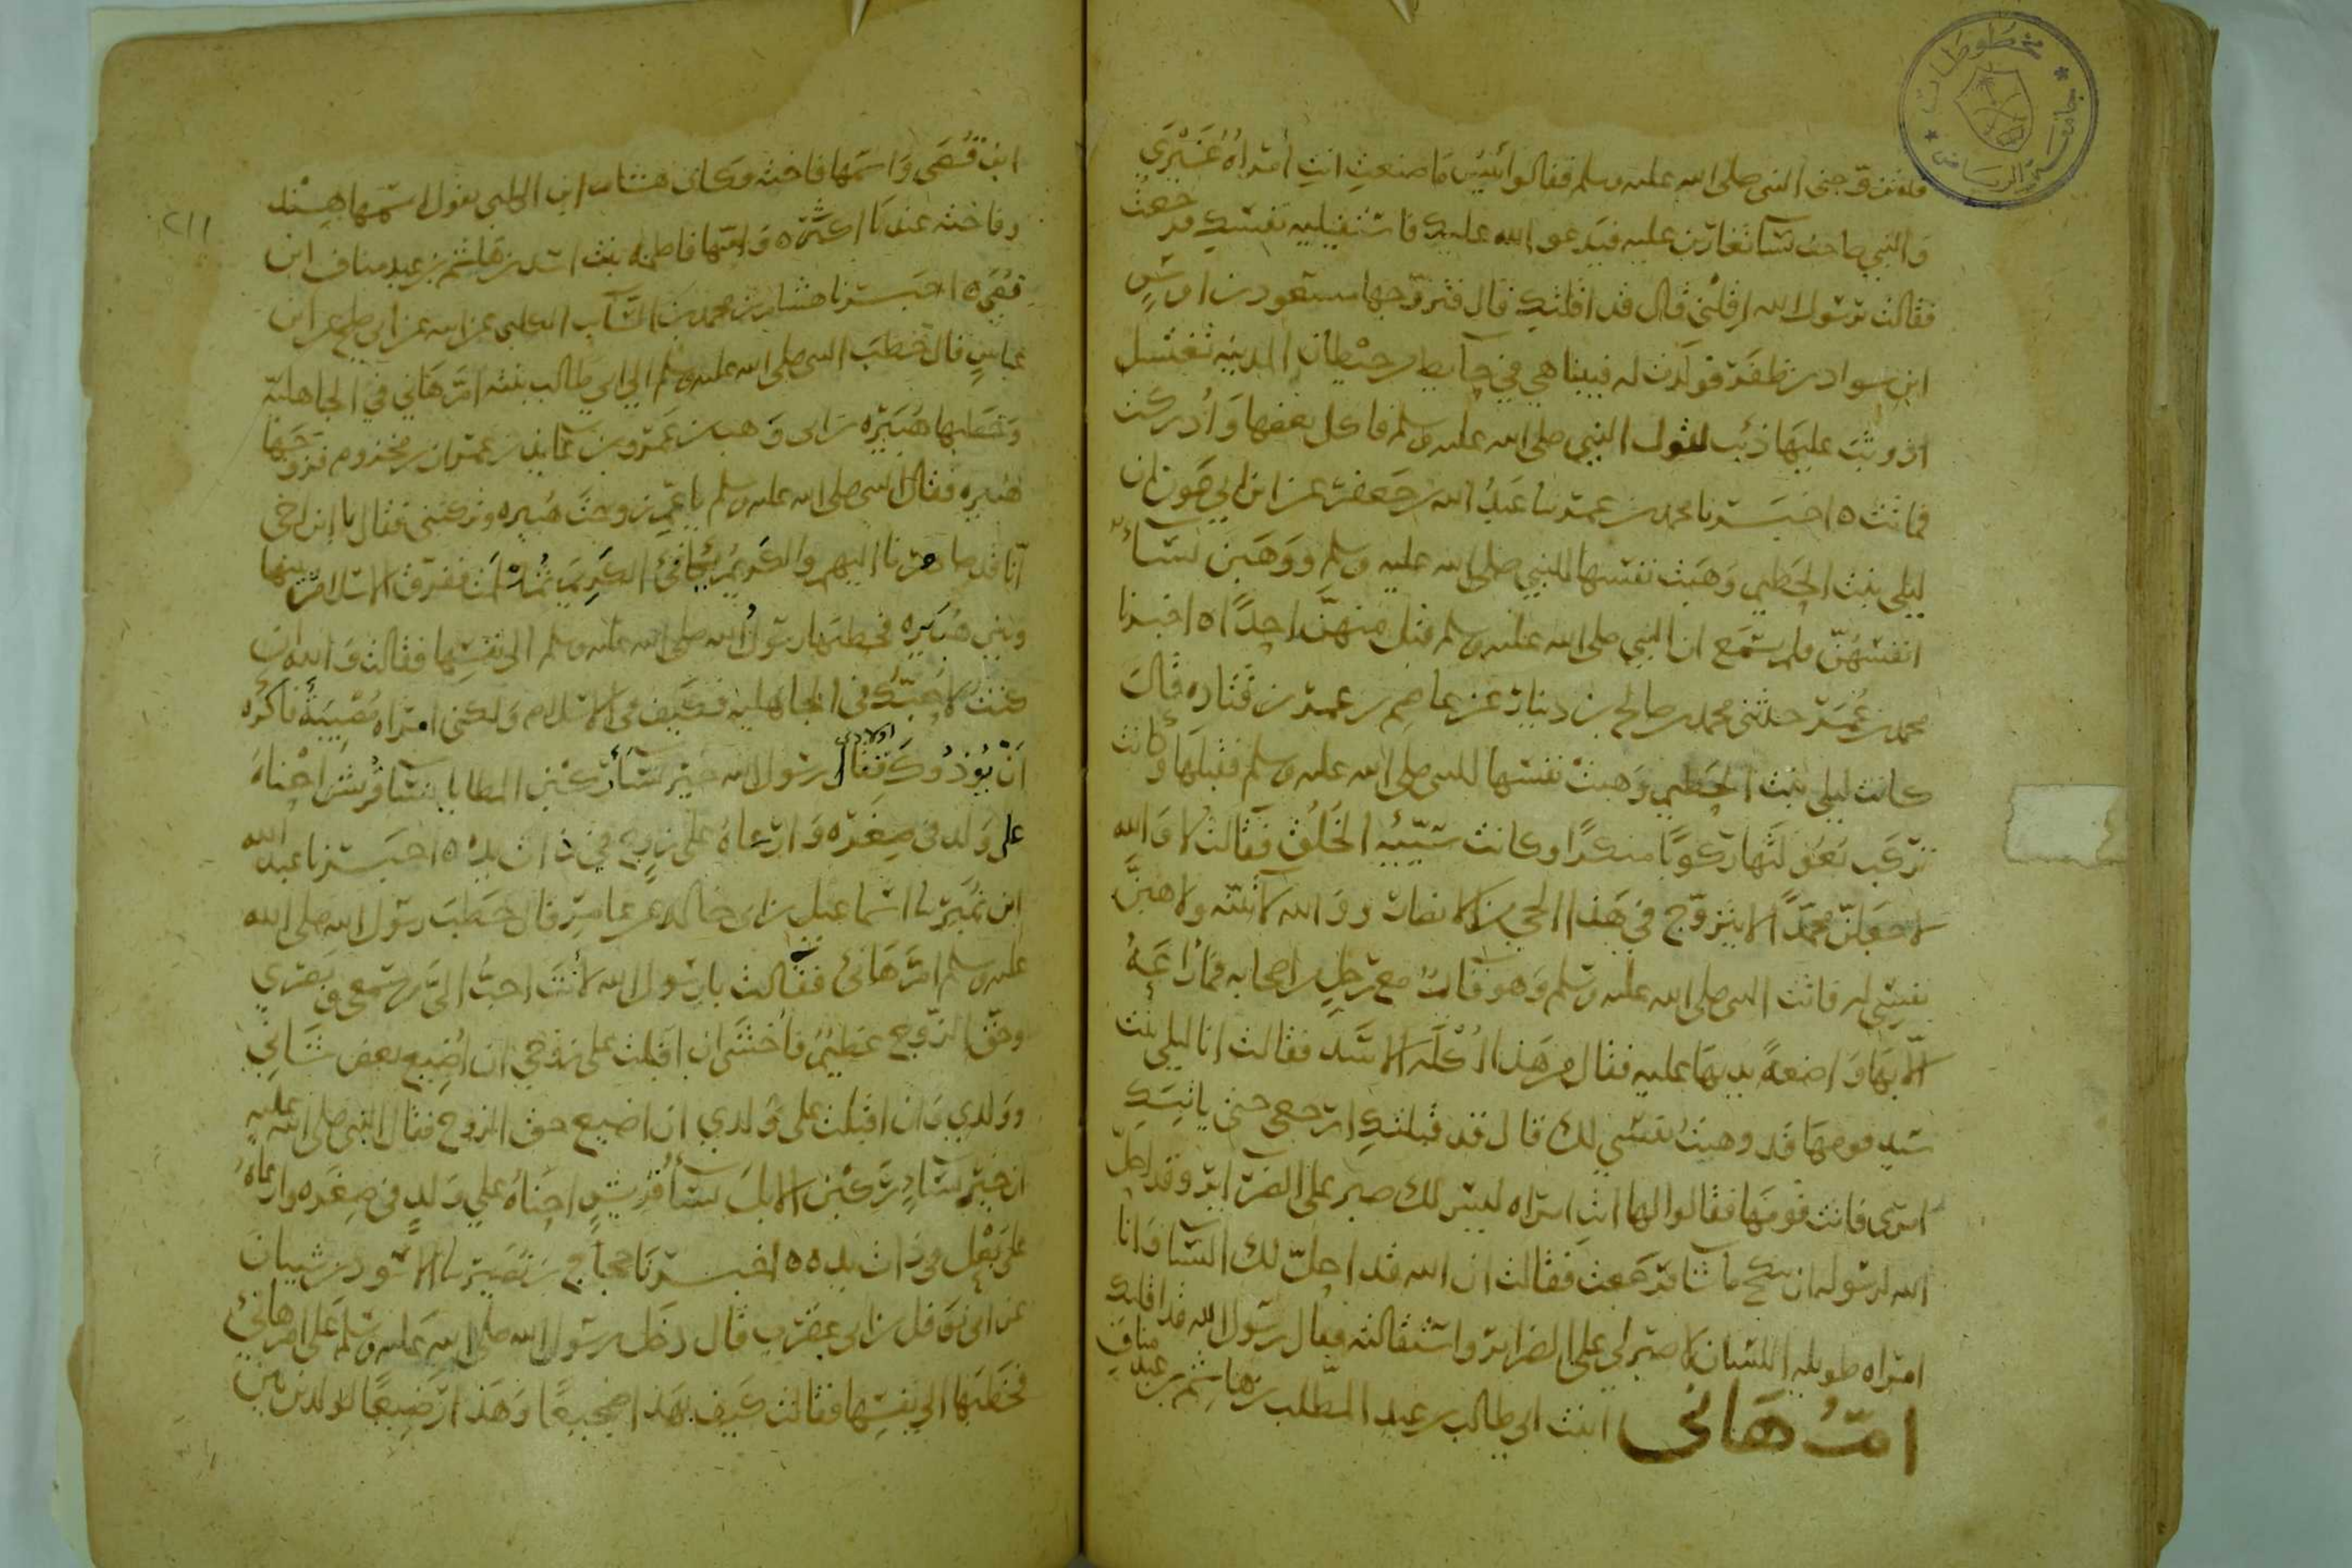 قد تزوجنى النبى صلى الله عليه وسلم فقالوا بئس ما صنعت انت امراه غيرى
والنبي صاحب نسآ تغارين عليه فيدعو الله عليك فاستقيليه نفسك فرجعت
فقالت يرسول الله اقلنى قال قد اقلتك قال فتزوجها مسعود بن اوس
ابن سواد بن ظفر فولدت له فبينا هي في حآيط من حيطان المدينه تغتسل
اذ وثب عليها ذئب لقول النبي صلى الله عليه وسلم فاكل بعضها وادركت
فماتت ه اخبرنا محمد بن عمر نا عبد الله بن جعفر عن ابن ابي عون ان
ليلى بنت الخطيم وهبت نفسها للنبي صلى الله عليه وسلم ووهبن نسآء
انفسهن فلم نسمع ان النبي صلى الله عليه وسلم قبل منهن احدا ه اخبرنا
محمد بن عمر حدثني محمد بن صالح بن دينار عن عاصم بن عمر بن قتاده قال
كانت ليلى بنت الخطيم وهبت نفسها للنبى صلى الله عليه وسلم فقبلها وكانت
تركب بعولتها ركوبا منكرا وكانت سيئه الخلق فقالت لا والله
لاجعلن محمدا لا يتزوج في هذا الحي من الانصار والله لاتينه ولاهبن
نفسي له فاتت النبى صلى الله عليه وسلم وهو قآئم مع رجل من اصحابه فما راعه
الا بها واضعة يديها عليه فقال من هذا اكله الاسد فقالت انا ليلى بنت
سيد قومها قد وهبت نفسي لك قال قد قبلتك ارجعى حتى ياتيك
امرى فاتت قومها فقالوا لها انت امراه ليس لك صبر على الضرآير وقد احل
الله لرسوله ان ينكح ما شآ فرجعت فقالت ان الله قد احل لك النسآ وانا
امراه طويله اللسان لا صبر لي على الضراير واستقالته فقال رسول الله قد اقلتك
ام هانى ابنت ابي طالب بن عبد المطلب بن هاشم بن عبد مناف
٢١١
ابن قصى واسمها فاخته وكان هشام ابن الكلبي يقول اسمها هند
وفاخته عندنا اكثر ه وامها فاطمه بنت اسد بن هاشم بن عبد مناف ابن
قصي ه اخبرنا هشام بن محمد بن السآيب الكلبى عن ابيه عن ابي صالح عن ابن
عباس قال خطب النبى صلى الله عليه وسلم الي ابي طالب بنته ام هاني في الجاهلية
وخطبها هبيره بن ابى وهب بن عمرو بن عايذ بن عمران بن مخزوم فزوجها
هبيره فقال النبى صلى الله عليه وسلم يا عم زوجت هبيره وتركتنى فقال يا ابن اخى
انا قد صاهرنا اليهم والكريم يكافئ الكريم ثم اسلمت ففرق الاسلام بينها
وبين هبيره فخطبها رسول الله صلى الله عليه وسلم الى نفسها فقالت والله ان
كنت لاحبك في الجاهليه فكيف في الاسلام ولكنى امراه مصبية فاكره
ان يؤذوك فقال رسول الله خير نسآ ركبن المطايا نسآ قريش احناه
على ولد فى صغره وارعاه على زوج في ذات يد ه اخبرنا عبد الله
ابن نمير نا اسماعيل بن ابى خالد عن عامر قال خطب رسول الله صلى الله
عليه وسلم ام هانئ فقالت يا رسول الله لانت احب الى من سمعى وبصرى
وحق الزوج عظيم فاخشى ان اقبلت على زوجي ان اضيع بعض شاني
وولدي وان اقبلت على ولدي ان اضيع حق الزوج فقال النبى صلى الله عليه
ان خير نسآ ركبن الابل نسآ قريش احناه على ولد فى صغره وارعاه
على بعل فى ذات يده ه اخبرنا حجاج بن نصير نا الاسود بن شيبان
عن ابى نوفل بن ابى عقرب قال دخل رسول الله صلى الله عليه وسلم على ام هانئ
فخطبها الى نفسها فقالت كيف بهذا ضجيعا وهذا رضيعا لولدين بين